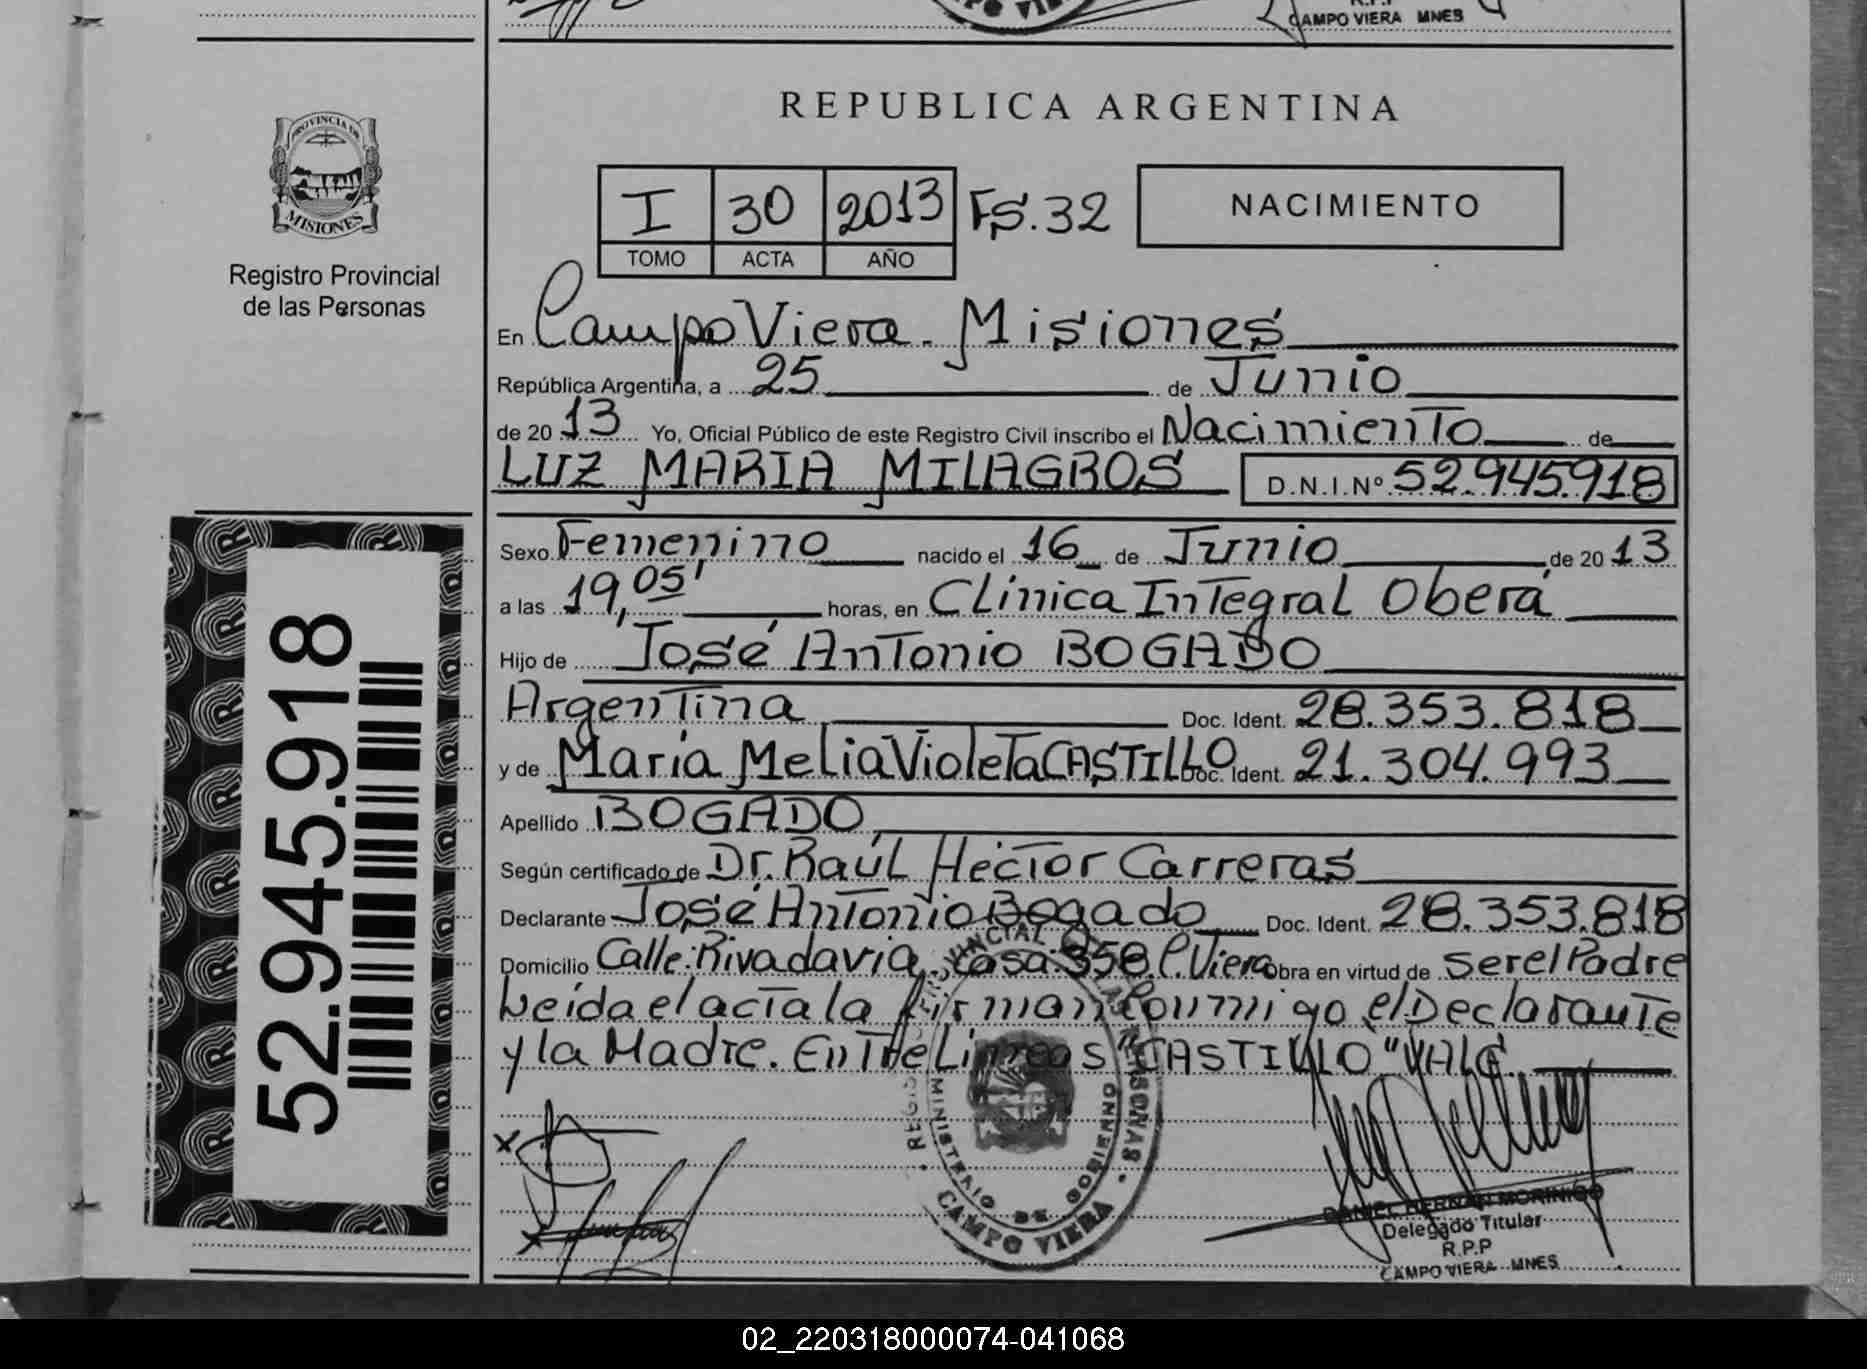 CAMPO VIERA MNES
PROVINCIA DE
MISIONES
Registro Provincial
de las Personas
52.945.918
REPUBLICA ARGENTINA
I 30 2013 FS.32 NACIMIENTO
TOMO ACTA AÑO
En Campo Viera. Misiones
República Argentina, a 25 de Junio
de 2013 Yo, Oficial Público de este Registro Civil inscribo el Nacimiento de
LUZ MARIA MILAGROS D.N.I.Nº 52.945.918
Sexo Femenino nacido el 16 de Junio de 2013
a las 19,05' horas, en Clínica Integral Oberá
Hijo de José Antonio BOGADO
Argentina Doc. Ident. 28.353.818
y de María Melia Violeta CASTILLO Doc. Ident. 21.304.993
Apellido BOGADO
Según certificado de Dr. Raúl Héctor Carreras
Declarante José Antonio Bogado Doc. Ident. 28.353.818
Domicilio Calle: Rivadavia, Casa: 358. C. Viera Obra en virtud de ser el Padre
Leída el acta la firman conmigo el Declarante
y la Madre. Entre Lineas "CASTILLO" VALE.
MINISTERIO DE GOBIERNO
CAMPO VIERA
DANIEL HERNAN MORINIGO
Delegado Titular
R.P.P
CAMPO VIERA MNES
02_220318000074-041068